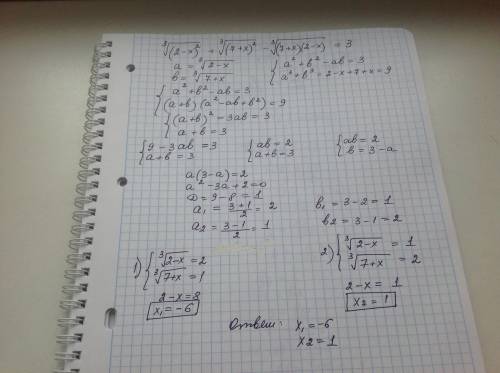 ∛(2-x)² + ∛(7+x)² - ∛(7+x)(2-x) = 3
a = ∛2-x
b = ∛7+x
{ a² + b² - ab = 3
{ a³ + b³ = 2-x+7+x = 9
{ a² + b² - ab = 3
{ (a+b)(a² - ab + b²) = 9
{ (a+b)² - 3ab = 3
{ a + b = 3
{ 9 - 3ab = 3 { ab = 2 { ab = 2
{ a+b = 3 { a+b = 3 { b = 3-a
a(3-a) = 2
a² - 3a + 2 = 0
D = 9 - 8 = 1
a₁ = 3+1/2 = 2 b₁ = 3-2 = 1
a₂ = 3-1/2 = 1 b₂ = 3-1 = 2
1) { ∛2-x = 2
{ ∛7+x = 1
2-x = 8
x₁ = -6
2) { ∛2-x = 1
{ ∛7+x = 2
2-x = 1
x₂ = 1
Ответ: x₁ = -6
x₂ = 1